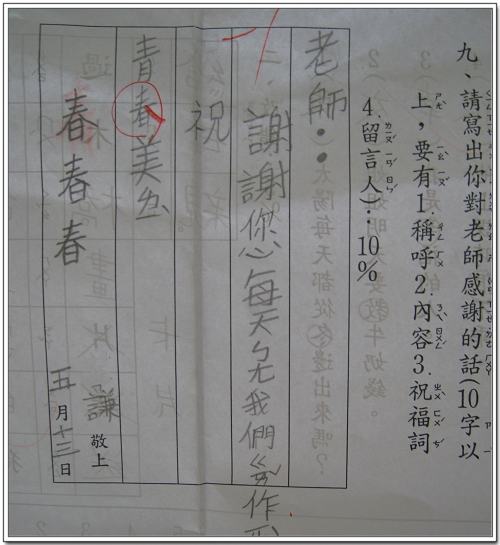 九、請寫出你對老師感謝的話(10字以
上，要有1.稱呼2.內容3.祝福詞
4.留言人)：10%
老師：
謝謝您每天ㄅㄤ我們作
祝
青春美
春春春
敬上
五月十三日